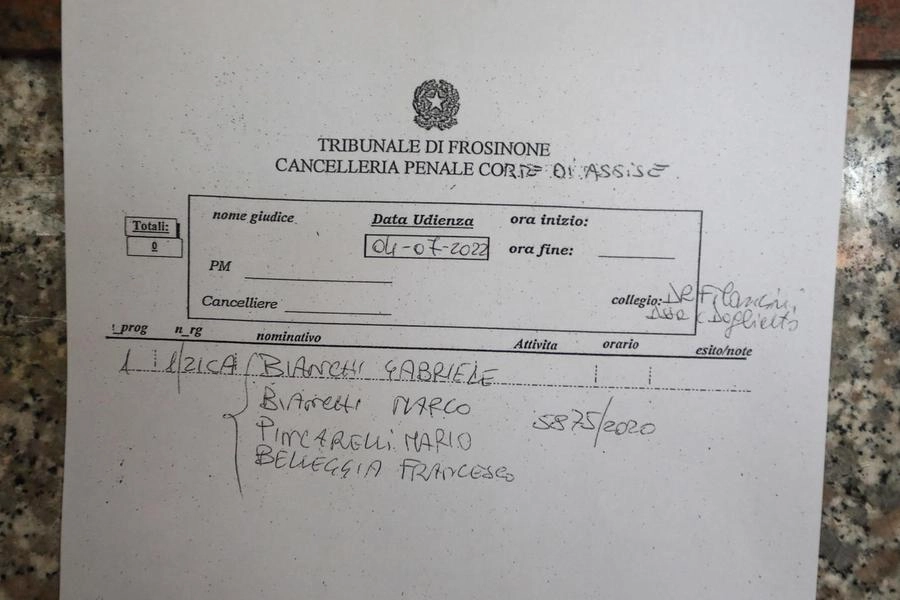 TRIBUNALE DI FROSINONE
CANCELLERIA PENALE CORTE DI ASSISE
Totali:
0
nome giudice Data Udienza ora inizio:
04-07-2022 ora fine:
PM
Cancelliere collegio: DR
!_prog n_rg nominativo Attivita orario esito/note
1 1/21CA BIANCHI GABRIELE
BIANCHI MARCO
5875/2020
PINCARELLI MARIO
BELLEGGIA FRANCESCO